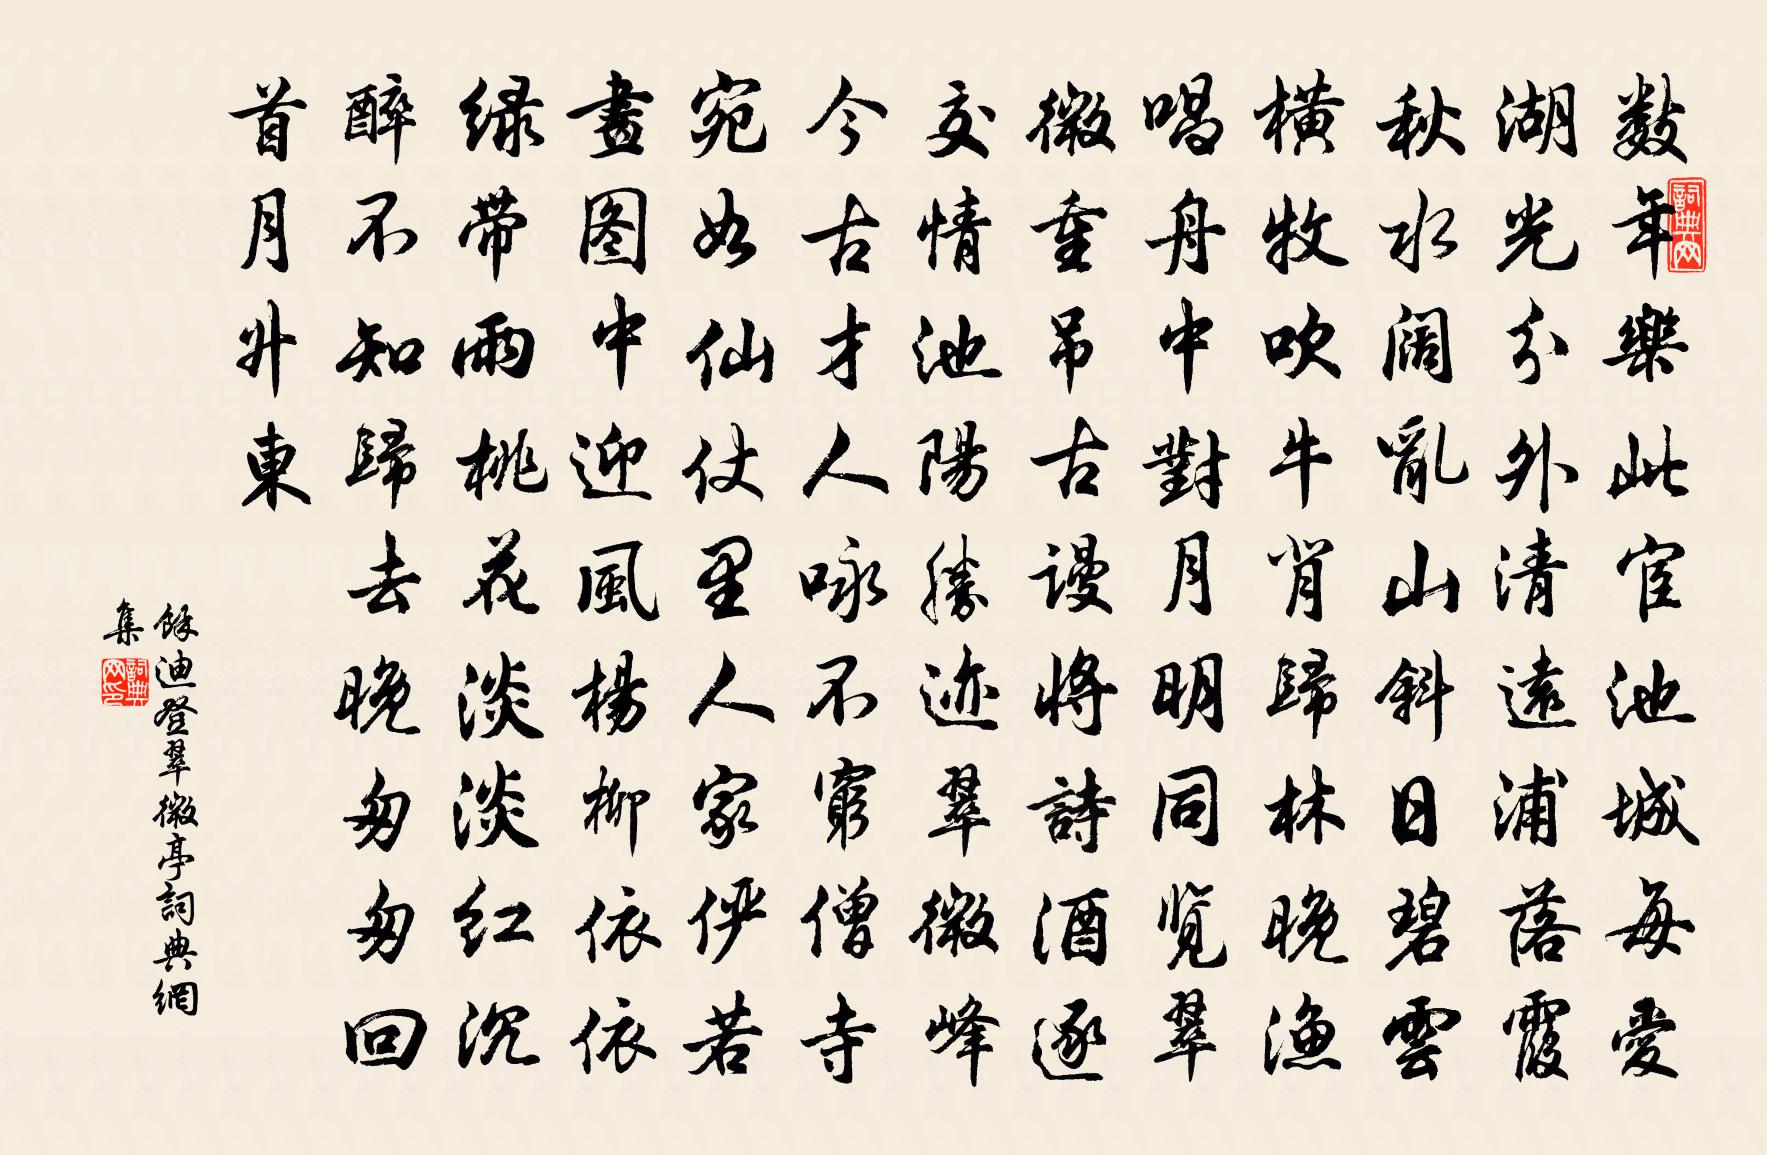 數年樂此宦池城每愛
湖光分外清遠浦落霞
秋水闊亂山斜日碧雲
橫牧吹牛肖歸林晚漁
唱舟中對月明同览翠
微重吊古谩將詩酒逐
交情池陽勝迹翠微峰
今古才人咏不窮僧寺
宛如仙仗里人家俨若
畫图中迎風楊柳依依
绿帶雨桃花淡淡红沉
醉不知歸去晚匆匆回
首月升東
餘迪登翠微亭詞典網
集
詞典网
詞典网印